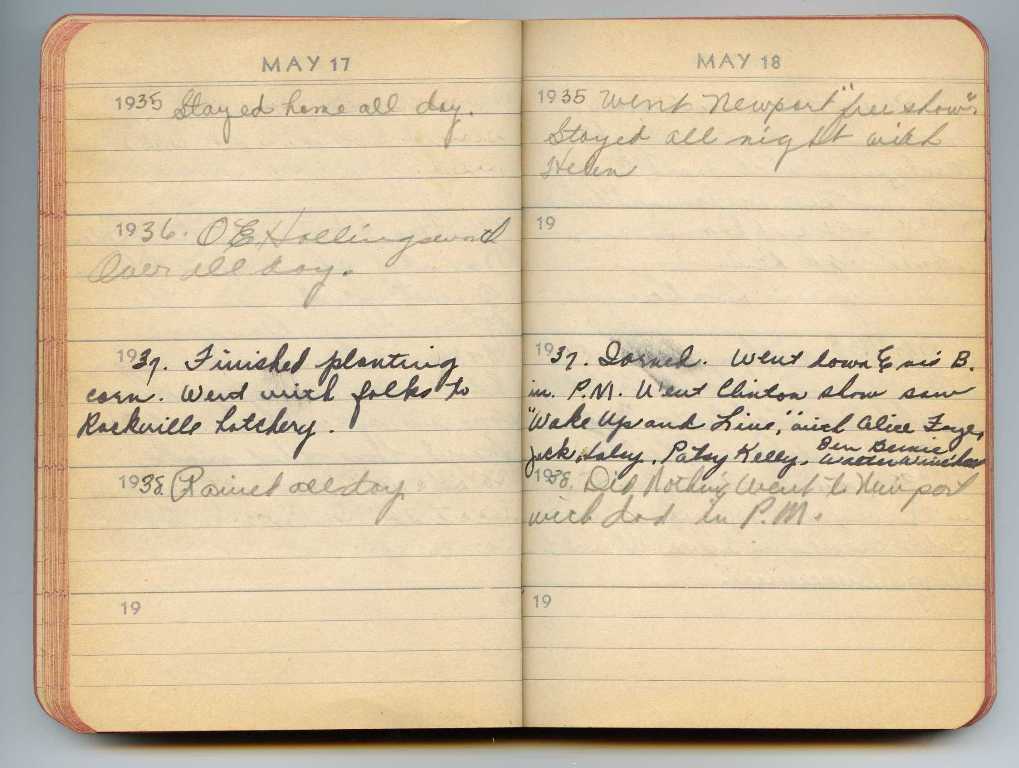 MAY 17
1935 Stayed home all day.
1936. O E Hollingsworth
Over all day.
1937. Finished planting
corn. Went with folks to
Rockville hatchery.
1938. Rained all day.
19
MAY 18
1935 Went Newport "free show".
Stayed all night with
Helen
19
1937. Went down B.
in P.M. Went Clinton show saw
"Wake Up and Live," with Alice Faye,
Jack Haley, Patsy Kelly, Ben Bernie
Walter Winchell
1938. Did Nothing Went to Newport
with dad in P.M.
19